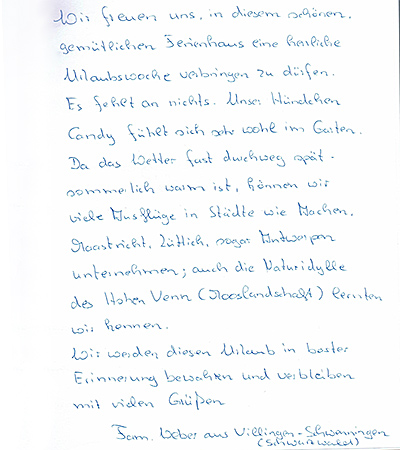 Wir freuen uns, in diesem schönen,
gemütlichen Ferienhaus eine herrliche
Urlaubswoche verbringen zu dürfen.
Es fehlt an nichts. Unser Hündchen
Candy fühlt sich sehr wohl im Garten.
Da das Wetter fast durchweg spät-
sommerlich warm ist, können wir
viele Ausflüge in Städte wie Aachen,
Maastricht, Lüttich, sogar Antwerpen
unternehmen; auch die Naturidylle
des Hohen Venn (Mooslandschaft) lernten
wir kennen.
Wir werden diesen Urlaub in bester
Erinnerung bewahren und verbleiben
mit vielen Grüßen
Fam. Weber aus Villingen-Schwenningen
(Schwarzwald)